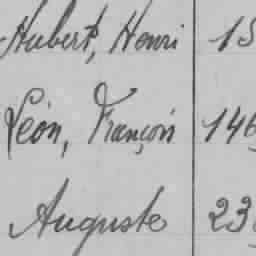 Hubert, Henri 15
Léon, François 146
Auguste 23